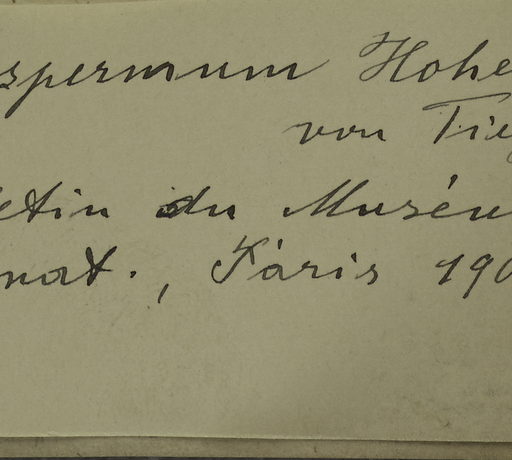 spermum Hohe
von Tieg
letin du Muséu
nat., Paris 190